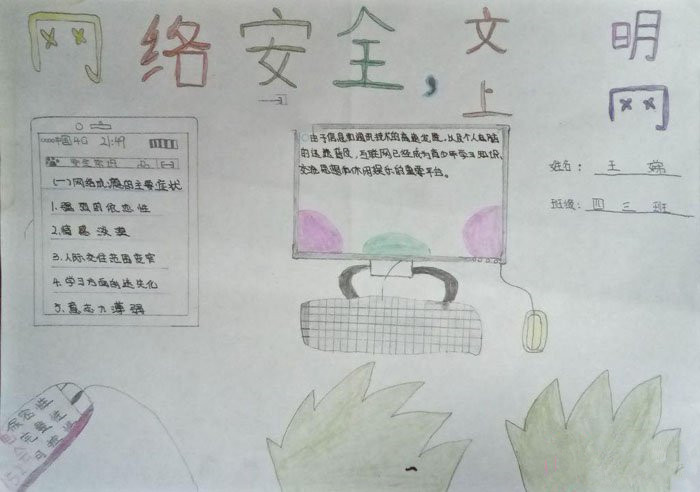 网络安全,文明
上网
中国4G 21:49
(一)网络成瘾的主要症状
1.强烈的依恋性
2.情感淡漠
3.人际交往范围变窄
4.学习方面
5.意志力薄弱
由于信息和通讯技术的高速发展,以及个人电脑
的迅速普及,互联网已经成为青少年学习知识、
交流思想和休闲娱乐的重要平台。
姓名:王
班级:四 三 班